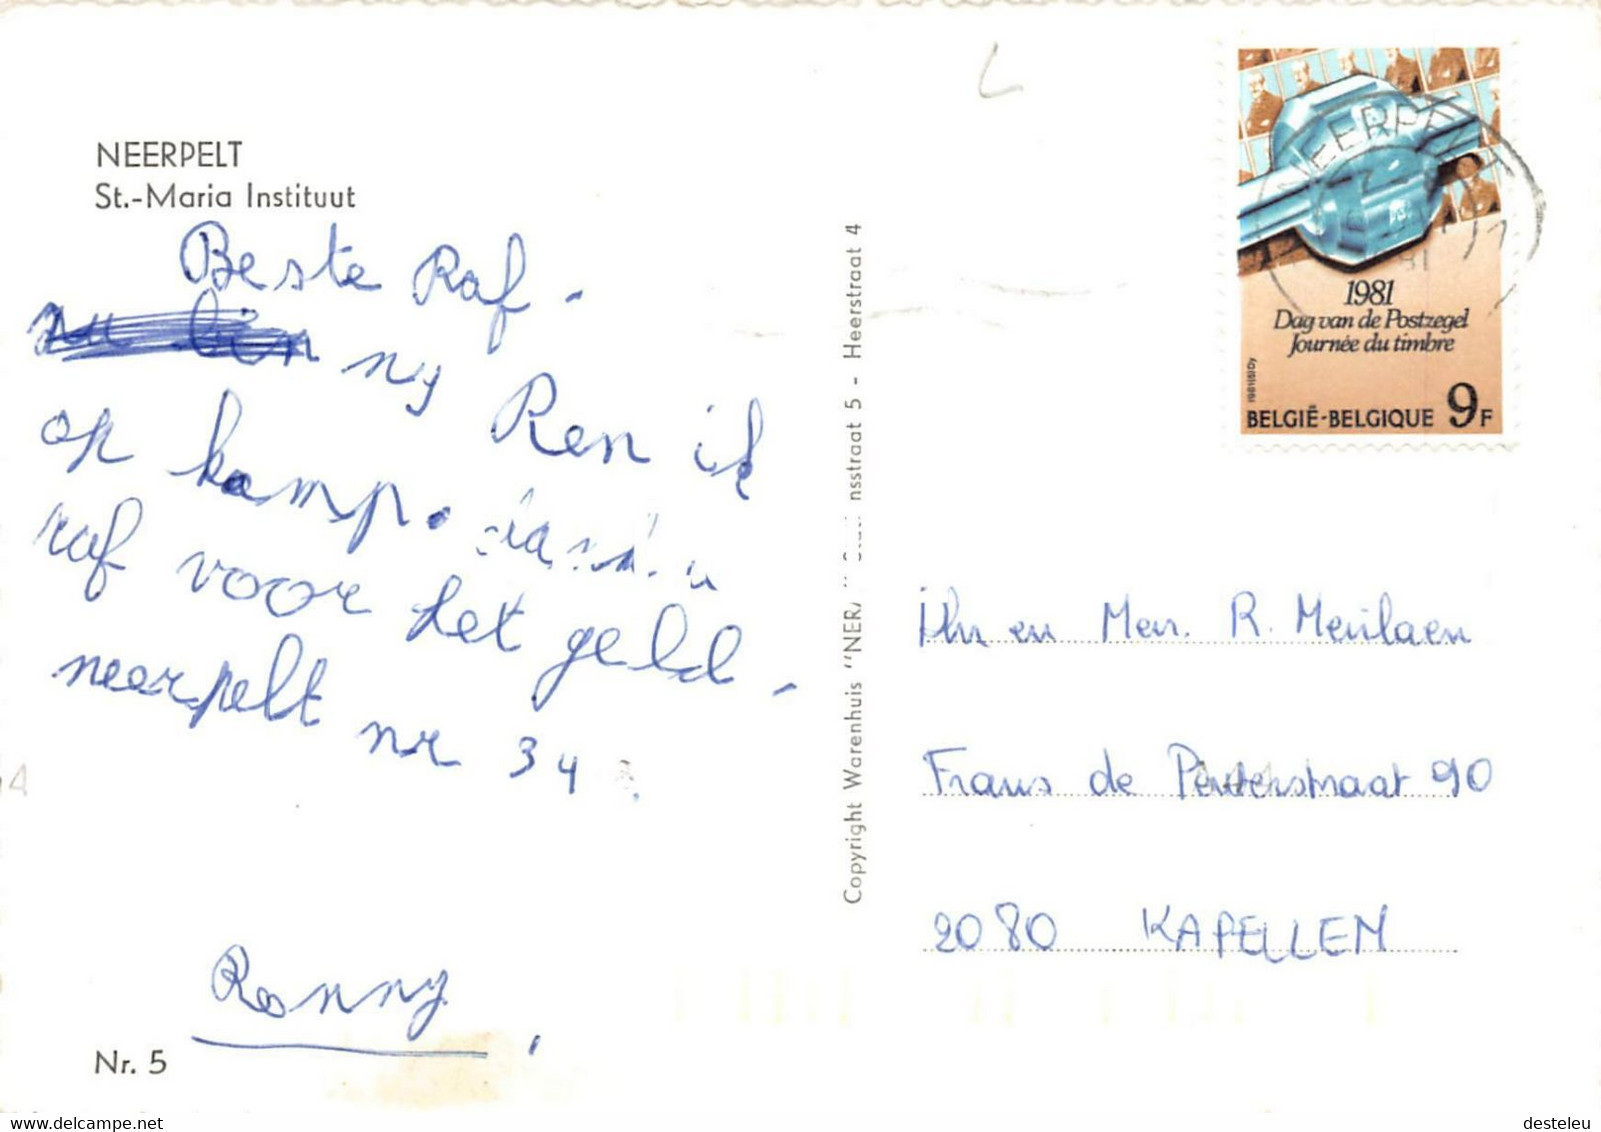 NEERPELT
St.-Maria Instituut
Beste Raf.
ny Ren ik
op kamp.
raf voor het geld.
neerpelt nr 34
Ronny
Nr. 5
Copyright Warenhuis "NER nsstraat 5 - Heerstraat 4
NEERPELT
1981
Dag van de Postzegel
Journée du timbre
BELGIË-BELGIQUE 9F
en Mevr. R. Meulaen
Frans de Peuterstraat 90
2080 KAPELLEN
delcampe.net
desteleu